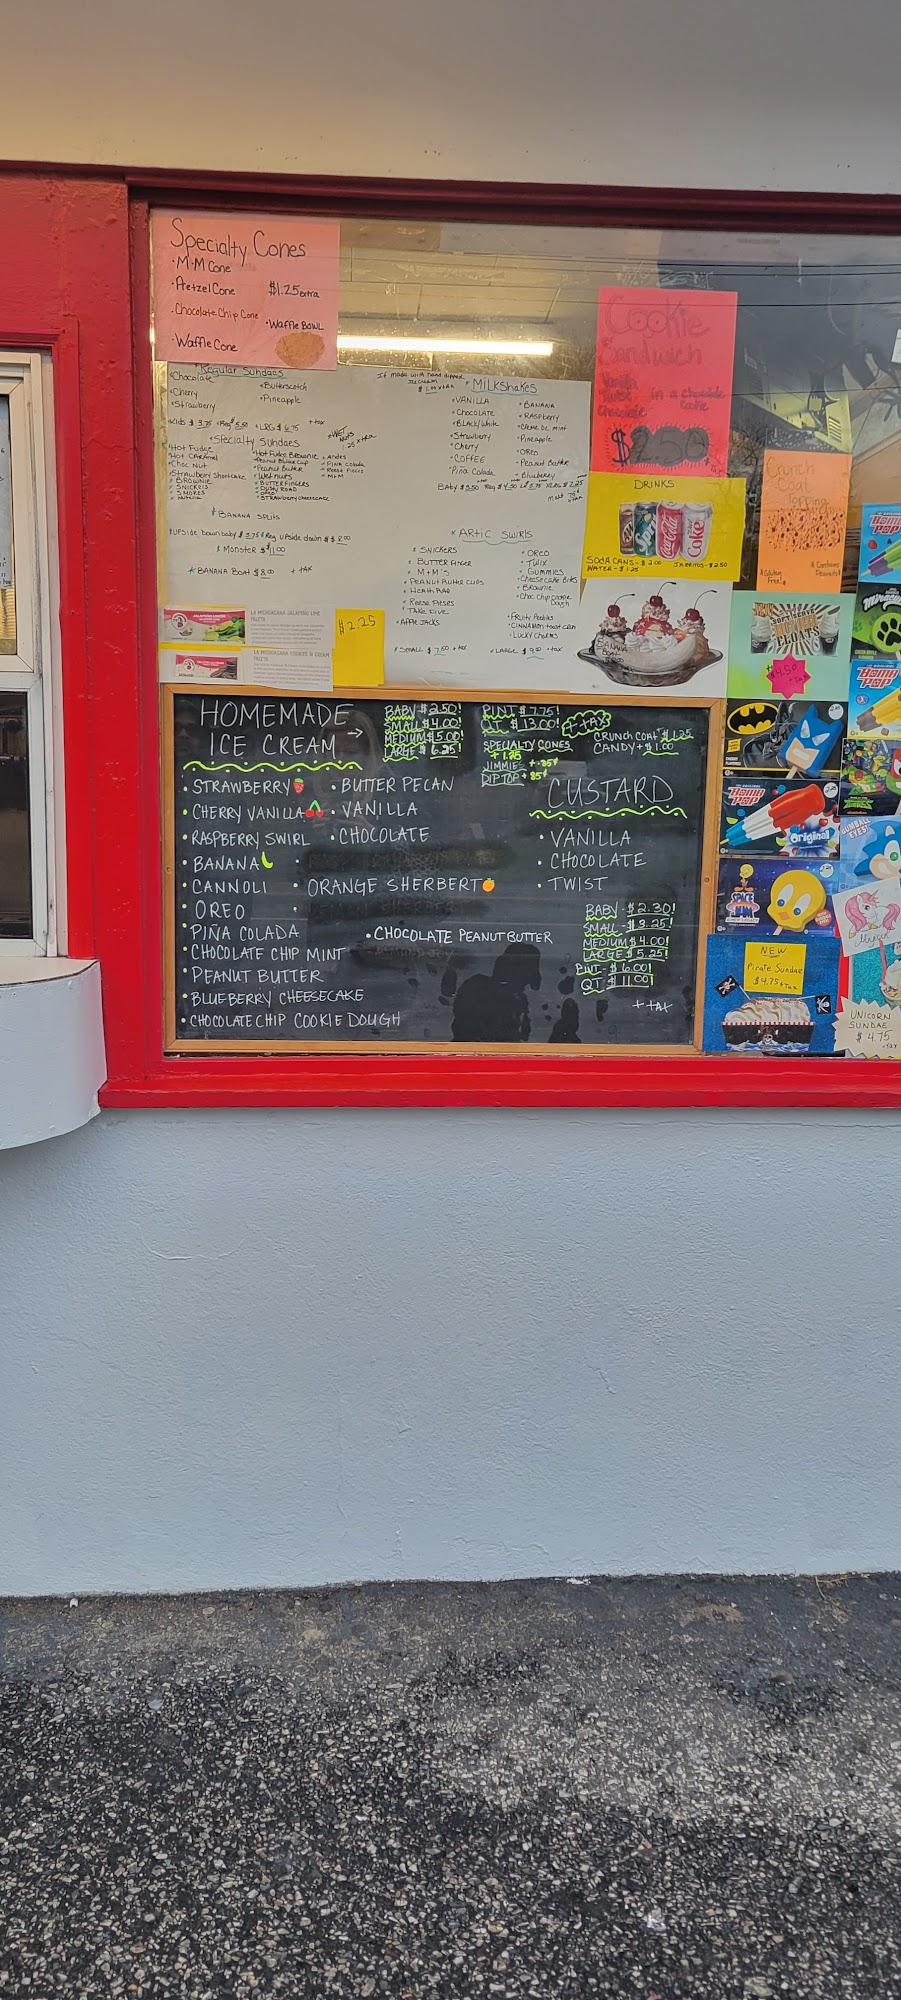 Specialty Cones
• M·M Cone
• Pretzel Cone $1.25 extra
• Chocolate Chip Cone
• Waffle Bowl
• Waffle Cone
Regular Sundaes
• Chocolate
• Butterscotch
• Cherry
• Pineapple
• Strawberry
LRG $6.75 + tax
Specialty Sundaes
Hot Fudge
Hot Caramel
Choc Nut
Strawberry Shortcake
Brownie
Snickers
Smores
Hot Fudge Brownie
Peanut Butter Cup
Peanut Butter
Wet nuts
Butterfingers
Oreo
Strawberry cheesecake
• Andes
• Pina Colada
• Reese Pieces
• M+M
* Banana Splits
* Monster $11.00
* Banana Boat $8.00 + tax
If made with hand dipped
Ice cream
Milkshakes
• Vanilla
• Chocolate
• Black/White
• Strawberry
• Cherry
• Coffee
• Piña Colada
• Banana
• Raspberry
• Creme De Mint
• Pineapple
• Oreo
• Peanut Butter
• Blueberry
* Artic Swirls
• Snickers
• Butter Finger
• M+M's
• Peanut Butter Cups
• Heath Bar
• Reese Pieses
• Take Five
• Apple Jacks
• Oreo
• Twix
• Gummies
• Cheesecake Bites
• Brownie
• Choc Chip Cookie
Dough
• Fruity Pebbles
• Cinnamon toast crun
• Lucky Charms
* Small $7.50 + tax
* Large $9.00 + tax
LA MICHOACANA JALAPEÑO LIME
PALETA
LA MICHOACANA COOKIES 'N CREAM
PALETA
$2.25
Cookie
Sandwich
Vanilla
Twist
Chocolate
in a chocolate
Cookie
$2.50
DRINKS
Sprite
Coca-Cola
Coke
SODA CANS - $2.00 JARRITOS - $2.50
WATER - $1.25
BANANA
BOAT
Crunch
Coat
Topping
Gluten
Free!
Contains
Peanuts!
FLOATS
$4.50
HOMEMADE
ICE CREAM →
BABY $3.50!
SMALL $4.00!
MEDIUM $5.00!
LARGE $6.25!
PINT $7.75!
QT $13.00!
+ TAX
SPECIALTY CONES
+ 1.25
JIMMIES + .85¢
DIP TOP + 85¢
CRUNCH COAT $1.25
CANDY + $1.00
• STRAWBERRY
• CHERRY VANILLA
• RASPBERRY SWIRL
• BANANA
• CANNOLI
• OREO
• PIÑA COLADA
• CHOCOLATE CHIP MINT
• PEANUT BUTTER
• BLUEBERRY CHEESECAKE
• CHOCOLATE CHIP COOKIE DOUGH
• BUTTER PECAN
• VANILLA
• CHOCOLATE
• ORANGE SHERBERT
• CHOCOLATE PEANUT BUTTER
CUSTARD
• VANILLA
• CHOCOLATE
• TWIST
BABY - $2.30!
SMALL - $3.25!
MEDIUM $4.00!
LARGE $5.25!
PINT - $6.00!
QT $11.00!
+ TAX
BOMB
POP
Miraculous
BOMB
POP
BATMAN
BOMB
POP
Original
GUMBALL
EYES!
SPACE
JAM
NEW
Pirate Sundae
$4.75 + Tax
UNICORN
SUNDAE
$4.75
+ tax